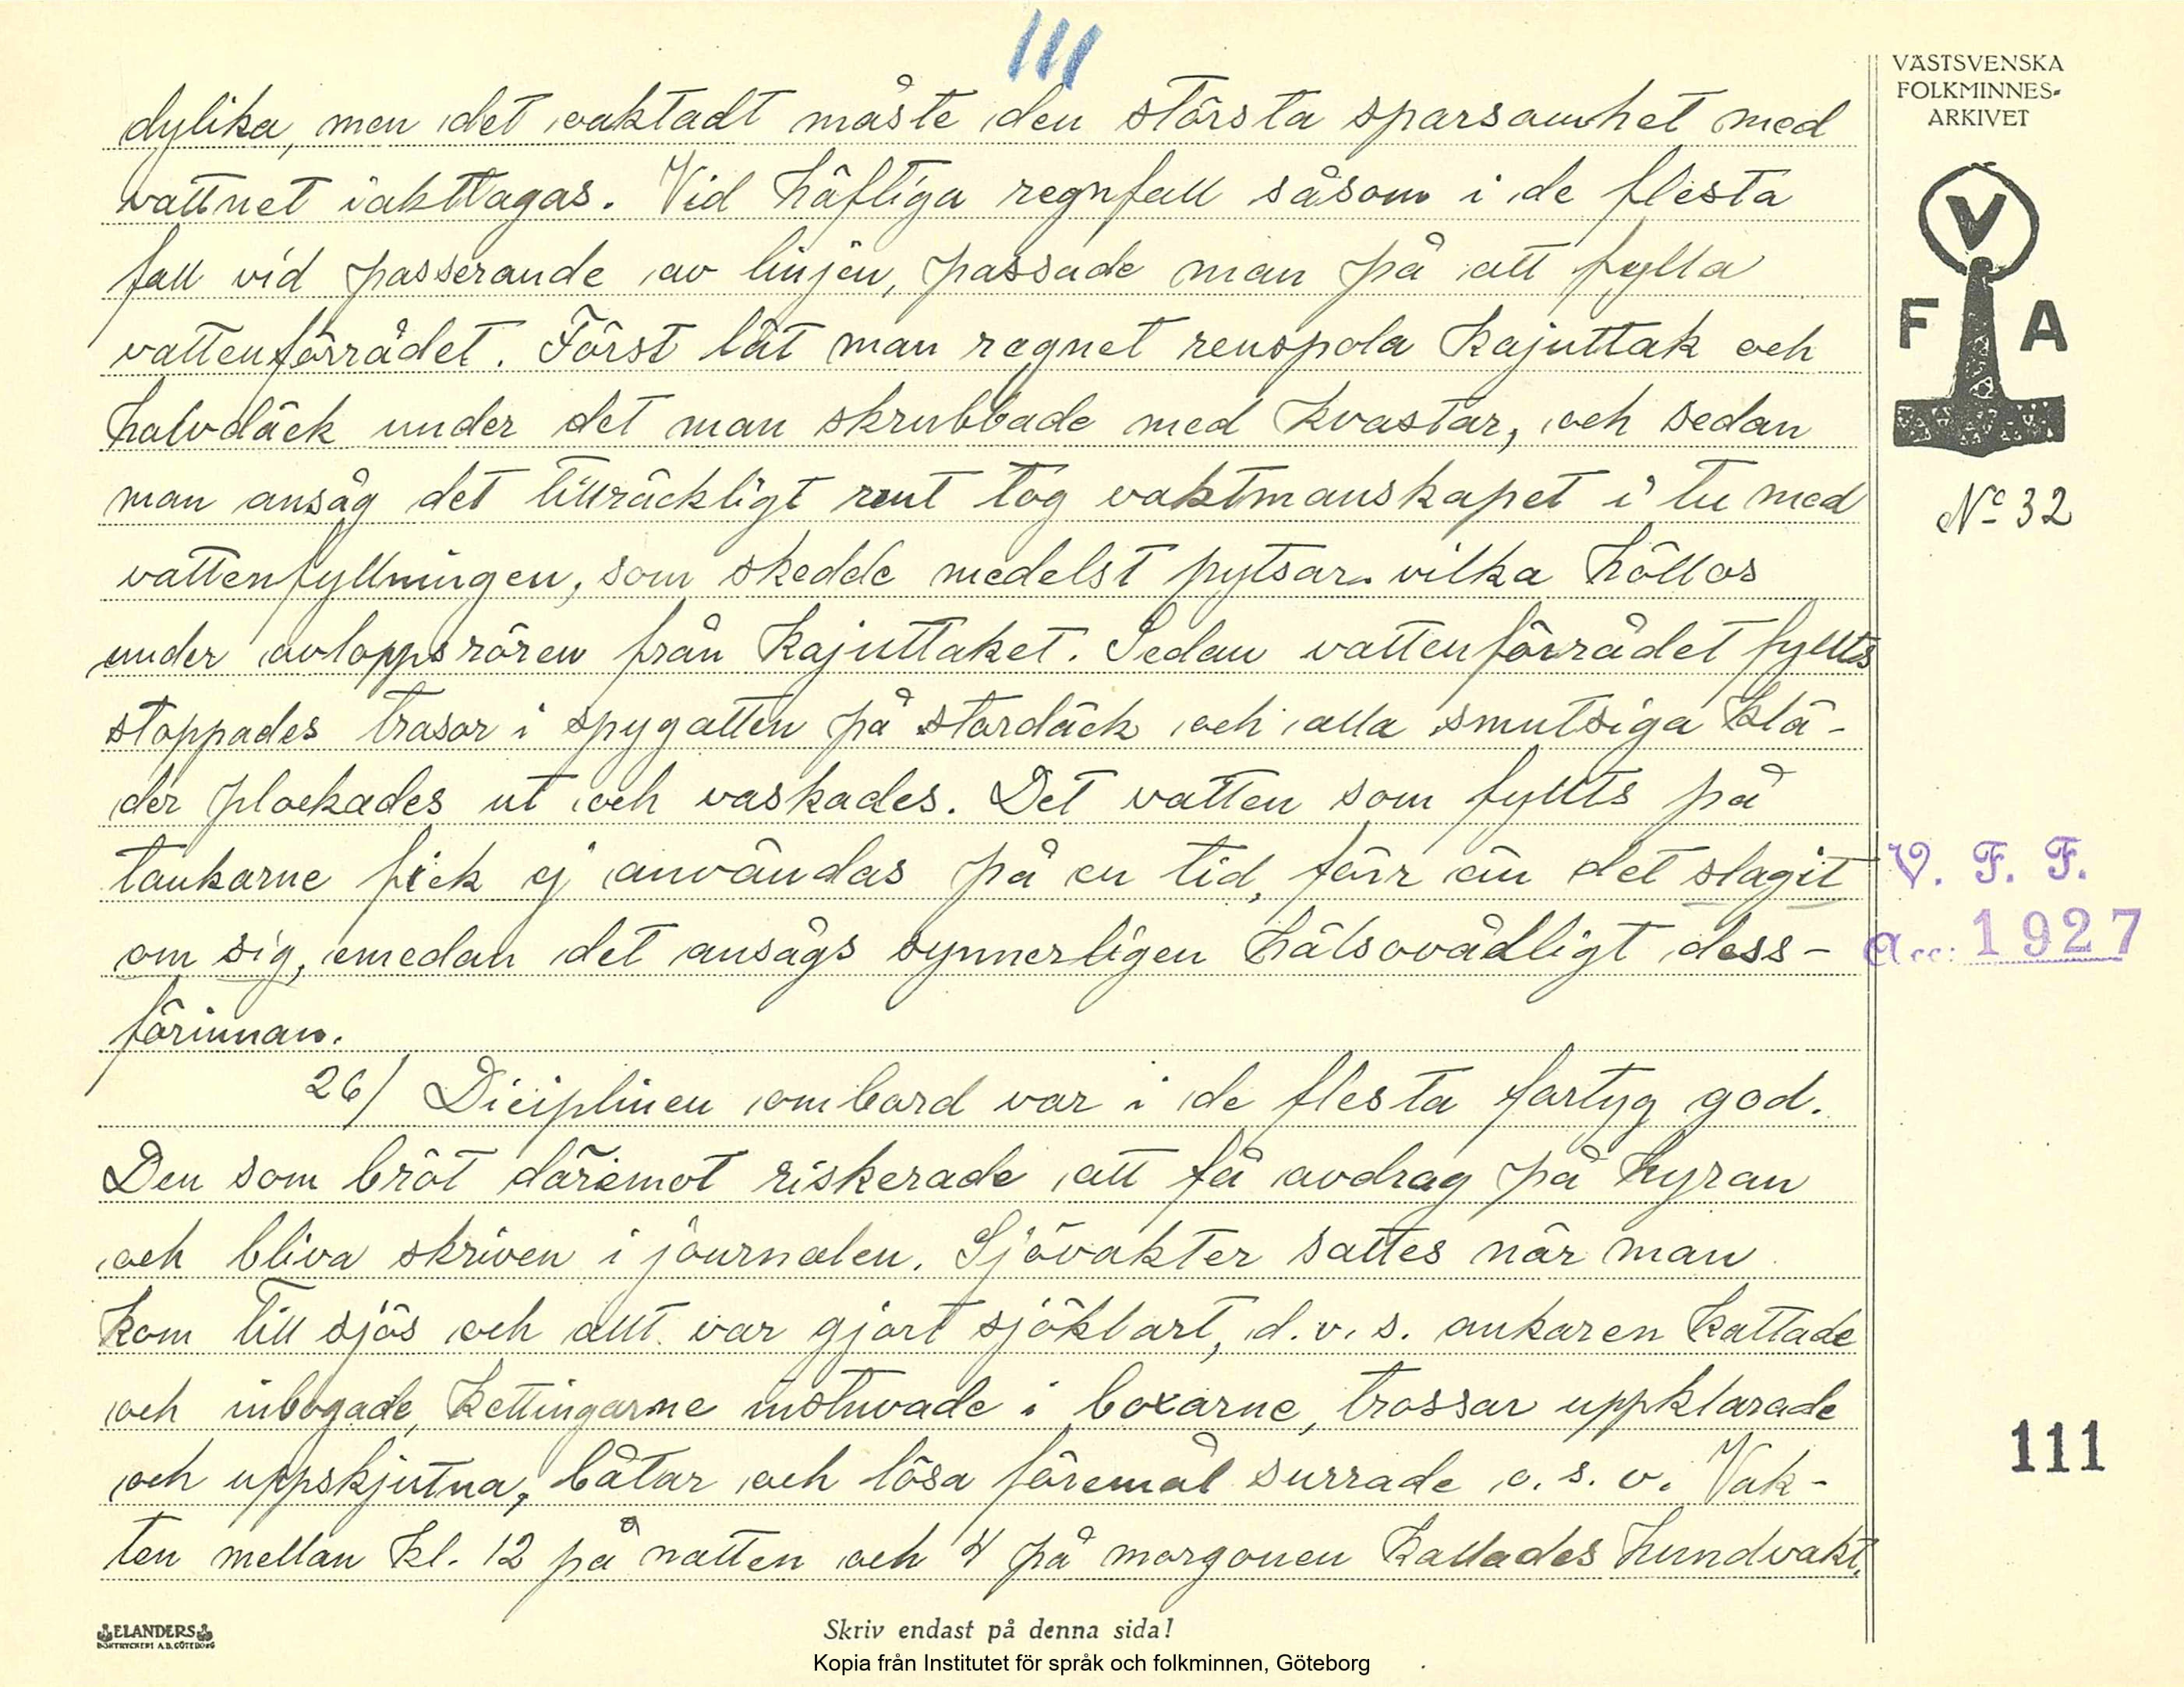 111
dylika, men det oaktadt måste den största sparsamhet med
vattnet iakttagas. Vid häftiga regnfall såsom i de flesta
fall vid passerande av linjen, passade man på att fylla
vattenförrådet. Först lät man regnet renspola kajuttak och
halvdäck under det man skrubbade med kvastar, och sedan
man ansåg det tillräckligt rent tog vaktmanskapet i tu med
vattenfyllningen, som skedde medelst pytsar vilka höllos
under avloppsrören från kajuttaket. Sedan vattenförrådet fyllts
stoppades trasor i spygatten på stordäck och alla smutsiga klä-
der plockades ut och vaskades. Det vatten som fyllts på
tankarne fick ej användas på en tid, förr än det slagit
om sig, emedan det ansågs synnerligen hälsovådligt dess-
förinnan.
26/ Diciplinen ombord var i de flesta fartyg god.
Den som bröt däremot riskerade att få avdrag på hyran
och bliva skriven i journalen. Sjövakter sattes när man
kom till sjös och allt var gjort sjöklart, d.v.s. ankaren kattade
och inbogade, kettingarne instuvade i boxarne, trossar uppklarade
och uppskjutna, båtar och lösa föremål surrade o.s.v. Vak-
ten mellan kl. 12 på natten och 4 på morgonen kallades hundvakt.
VÄSTSVENSKA
FOLKMINNES-
ARKIVET
V
F A
No 32
V. F. F.
Acc: 1927
111
ELANDERS
BOKTRYCKERI A.B. GÖTEBORG
Skriv endast på denna sida!
Kopia från Institutet för språk och folkminnen, Göteborg